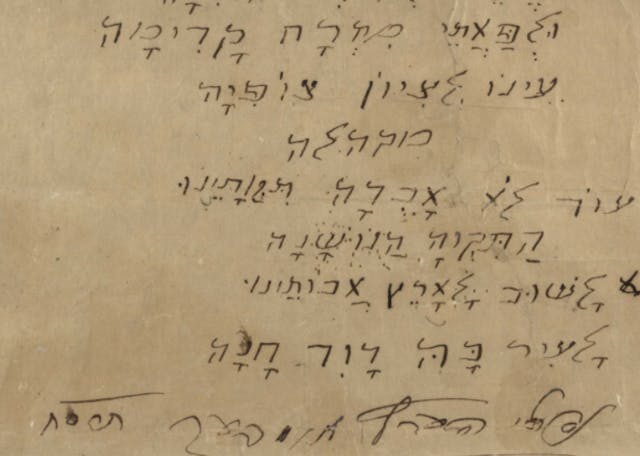 וּלְפַאֲתֵי מִזְרָח קָדִימָה
עֵינוֹ לְצִיוֹן צוֹפִיָה
מוקהלה
עוֹד לֹא אָבְדָה תִּקְוָתֵינוּ
הַתִּקְוָה הַנוֹשָׁנָה
לָשׁוּב לְאָרֶץ אֲבוֹתֵינוּ
לָעִיר בָּהּ דָוִד חָנָה
נפתלי הערץ אימבער תרסח